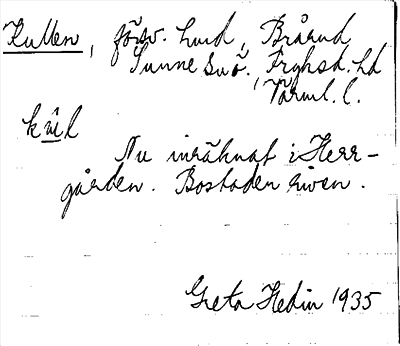 Kullen, försv. hmd, Brårud
Sunne sn ö., Fryksd. hd
Värml. l.
kùl
Nu inräknat i Herr-
gården. Bostaden riven.
Greta Hedin 1935